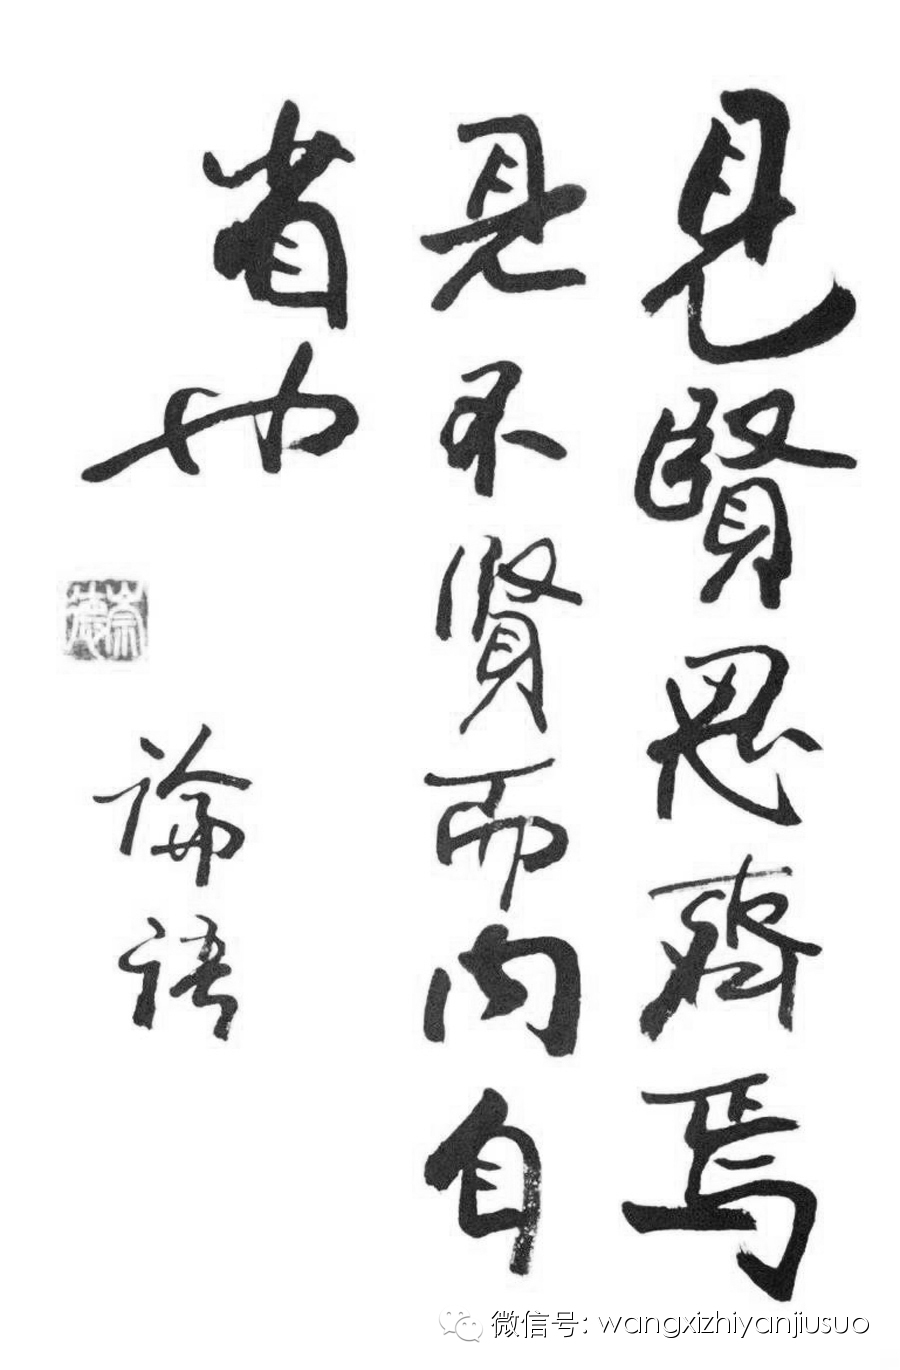 見賢思齊焉
見不賢而內自
省也
崇德
論語
微信号: wangxizhiyanjiusuo